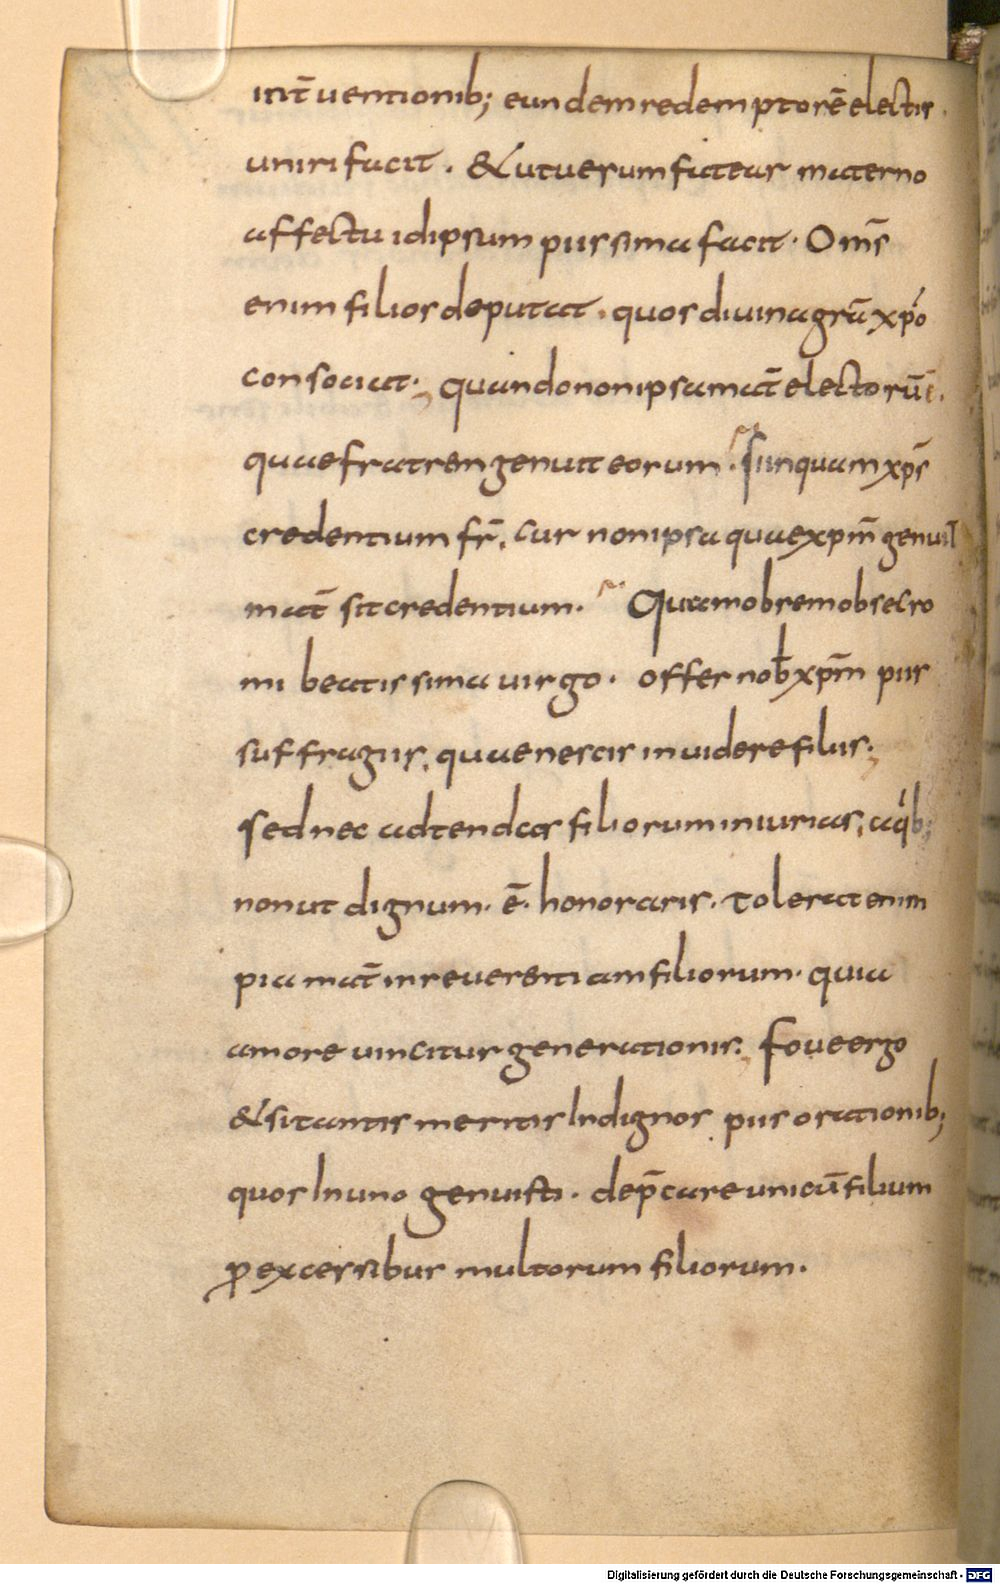 int̄uentionib; eundem redemptorē electis.
uniri facit. & ut uerum fatear materno
affectu id ipsum piissima facit. Om̄s
enim filios deputat. quos diuina grā xp̄o
consociat; quando non ipsa mat̄ electorū ē.
quae fratrem genuit eorum. Si inquam xp̄s
credentium fr̄. cur non ipsa quae xp̄m genuit
mat̄ sit credentium. Quamobrem obsecro
mi beatissima uirgo. offer nob̄ xp̄m piis
suffragiis, quae nescis inuidere filiis;
sed nec adtendas filiorum iniurias, a q'b;
non ut dignum. ē. honoraris. tolerat enim
pia mat̄ inreuerentiam filiorum. quia
amore uincitur generationis; foue ergo
& si tantis meritis indignos piis orationib;
quos in uno genuisti. dep̄care unicū filium
ꝓ excessibus multorum filiorum.
Digitalisierung gefördert durch die Deutsche Forschungsgemeinschaft - DFG